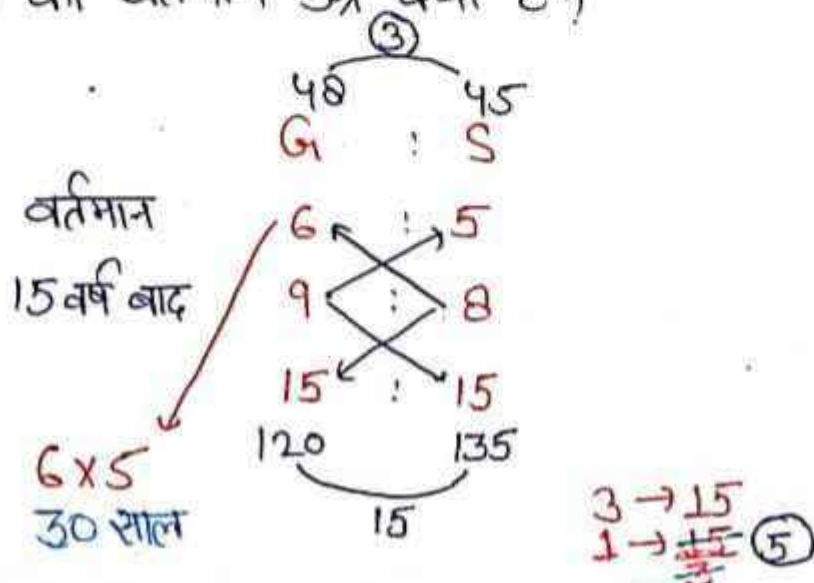 की वर्तमान उम्र क्या है?
3
48 45
G : S
वर्तमान 6 : 5
15 वर्ष बाद 9 : 8
15 : 15
120 135
15
6 x 5
30 साल
3 → 15
1 → 15/3 5